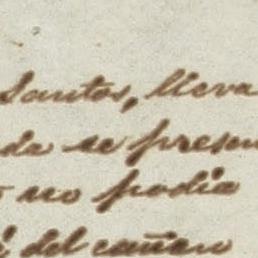 Santos, lleva
da se presen
no podia
del cañon